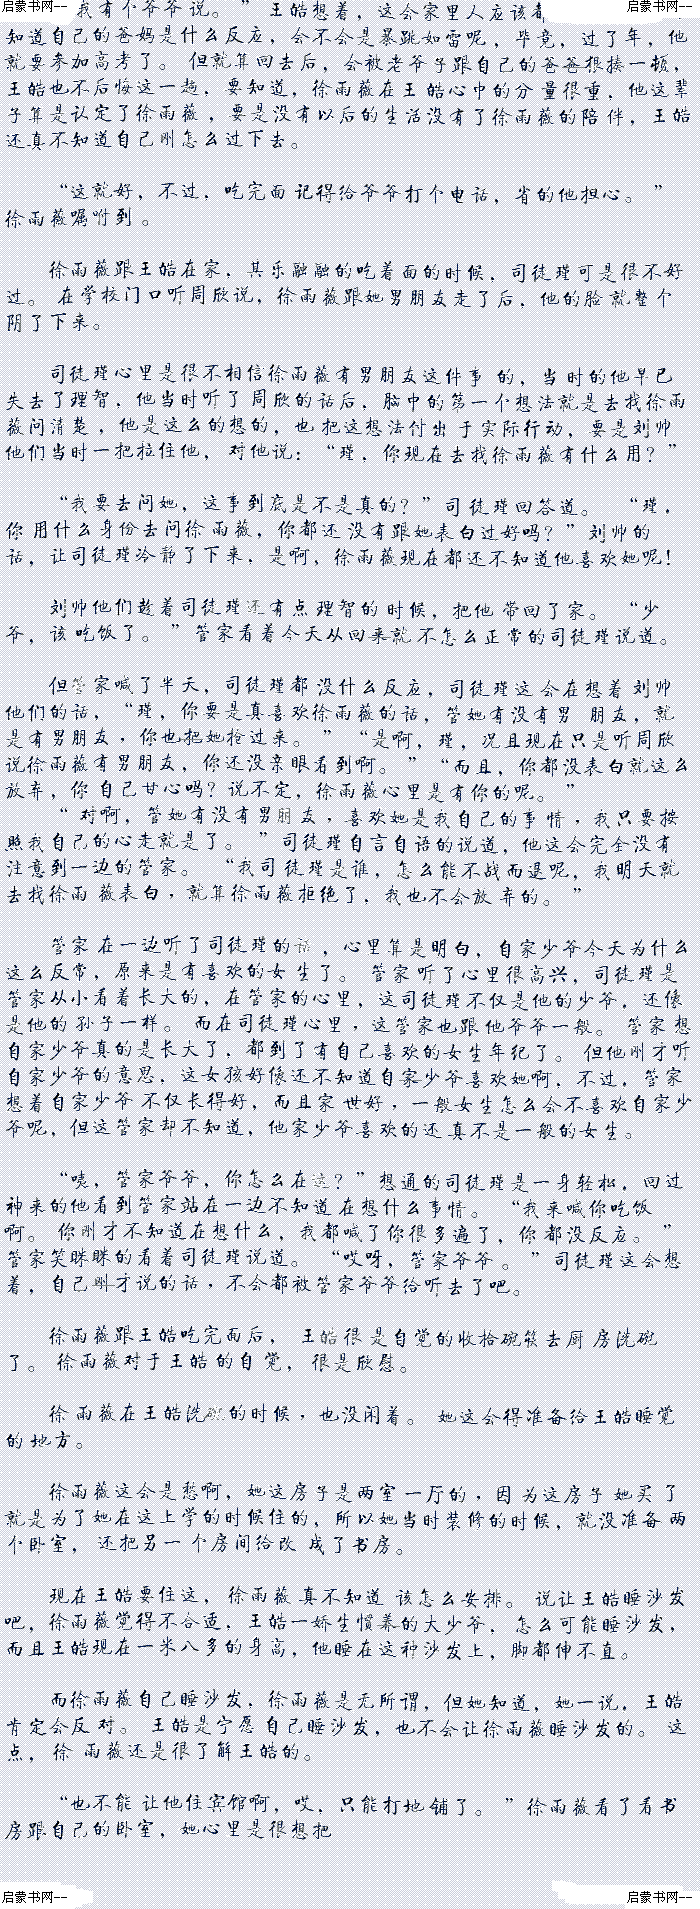 启蒙书网--
启蒙书网--
我有个爷爷说。 ” 王皓想着，这会家里人应该都
知道自己的爸妈是什么反应，会不会是暴跳如雷呢，毕竟，过了年，他
就要参加高考了。 但就算回去后，会被老爷子跟自己的爸爸狠揍一顿，
王皓也不后悔这一趟，要知道，徐雨薇在王皓心中的分量很重，他这辈
子算是认定了徐雨薇，要是没有以后的生活没有了徐雨薇的陪伴，王皓
还真不知道自己刚怎么过下去。
“这就好，不过，吃完面记得给爷爷打个电话，省的他担心。 ”
徐雨薇嘱咐到。
徐雨薇跟王皓在家，其乐融融的吃着面的时候，司徒瑾可是很不好
过。 在学校门口听周欣说，徐雨薇跟她男朋友走了后，他的脸就整个
阴了下来。
司徒瑾心里是很不相信徐雨薇有男朋友这件事的，当时的他早已
失去了理智，他当时听了周欣的话后，脑中的第一个想法就是去找徐雨
薇问清楚，他是这么的想的，也把这想法付出于实际行动，要是刘帅
他们当时一把拉住他，对他说： “瑾，你现在去找徐雨薇有什么用？”
“我要去问她，这事到底是不是真的？”司徒瑾回答道。 “瑾，
你用什么身份去问徐雨薇，你都还没有跟她表白过好吗？”刘帅的
话，让司徒瑾冷静了下来，是啊，徐雨薇现在都还不知道他喜欢她呢！
刘帅他们趁着司徒瑾还有点理智的时候，把他带回了家。 “少
爷，该吃饭了。 ”管家看着今天从回来就不怎么正常的司徒瑾说道。
但管家喊了半天，司徒瑾都没什么反应，司徒瑾这会在想着刘帅
他们的话，“瑾，你要是真喜欢徐雨薇的话，管她有没有男朋友，就
是有男朋友，你也把她抢过来。 ” “是啊，瑾，况且现在只是听周欣
说徐雨薇有男朋友，你还没亲眼看到啊。 ” “而且，你都没表白就这么
放弃，你自己甘心吗？说不定，徐雨薇心里是有你的呢。 ”
“对啊，管她有没有男朋友，喜欢她是我自己的事情，我只要按
照我自己的心走就是了。 ”司徒瑾自言自语的说道，他这会完全没有
注意到一边的管家。 “我司徒瑾是谁，怎么能不战而退呢，我明天就
去找徐雨薇表白，就算徐雨薇拒绝了，我也不会放弃的。”
管家在一边听了司徒瑾的话，心里算是明白，自家少爷今天为什么
这么反常，原来是有喜欢的女生了。 管家听了心里很高兴，司徒瑾是
管家从小看着长大的，在管家的心里，这司徒瑾不仅是他的少爷，还像
是他的孙子一样。 而在司徒瑾心里，这管家也跟他爷爷一般。 管家想
自家少爷真的是长大了，都到了有自己喜欢的女生年纪了。 但他刚才听
自家少爷的意思，这女孩好像还不知道自家少爷喜欢她啊，不过，管家
想着自家少爷不仅长得好，而且家世好，一般女生怎么会不喜欢自家少
爷呢，但这管家却不知道，他家少爷喜欢的还真不是一般的女生。
“咦，管家爷爷，你怎么在这？”想通的司徒瑾是一身轻松，回过
神来的他看到管家站在一边不知道在想什么事情。 “我来喊你吃饭
啊。 你刚才不知道在想什么，我都喊了你很多遍了，你都没反应。 ”
管家笑眯眯的看着司徒瑾说道。 “哎呀，管家爷爷。 ”司徒瑾这会想
着，自己刚才说的话，不会都被管家爷爷给听去了吧。
徐雨薇跟王皓吃完面后， 王皓很是自觉的收拾碗筷去厨房洗碗
了。 徐雨薇对于王皓的自觉，很是欣慰。
徐雨薇在王皓洗碗的时候，也没闲着。 她这会得准备给王皓睡觉
的地方。
徐雨薇这会是愁啊，她这房子是两室一厅的，因为这房子她买了
就是为了她在这上学的时候住的，所以她当时装修的时候，就没准备两
个卧室，还把另一个房间给改成了书房。
现在王皓要住这，徐雨薇真不知道该怎么安排。 说让王皓睡沙发
吧，徐雨薇觉得不合适，王皓一娇生惯养的大少爷，怎么可能睡沙发，
而且王皓现在一米八多的身高，他睡在这种沙发上，脚都伸不直。
而徐雨薇自己睡沙发，徐雨薇是无所谓，但她知道，她一说，王皓
肯定会反对。 王皓是宁愿自己睡沙发，也不会让徐雨薇睡沙发的。 这
点，徐雨薇还是很了解王皓的。
“也不能让他住宾馆啊，哎，只能打地铺了。 ”徐雨薇看了看书
房跟自己的卧室，她心里是很想把
启蒙书网--
启蒙书网--